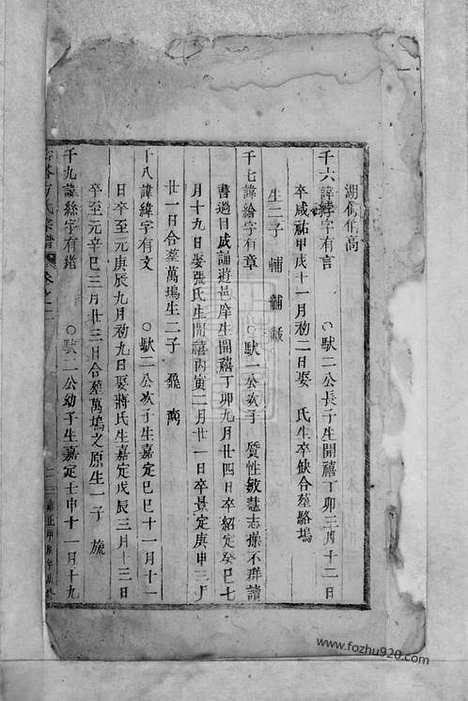 湖雋作高
千六諱綍字有言 ○馱二公長子生開禧丁卯三月十二日
卒咸祐甲戌十一月初二日娶 氏生卒缺合塟駱塢
生二子 輔 黻
千七諱綸字有章 ○馱一公次子 質性敏慧志操不群讀
書過目成誦遊邑庠生開禧丁卯九月廿四日卒紹定癸巳七
月十九日娶張氏生開禧丙寅二月廿一日卒景定庚申三月
廿一日合塟萬塢生二子
十八諱緯字有文 ○馱二公次子生嘉定己巳十一月十一
日卒至元庚辰九月初九日娶蔣氏生嘉定戊辰三月十三日
卒至元辛巳三月廿三日合塟萬塢之原生一子 旒
千九諱絲字有緒 ○馱一公幼子生嘉定壬申十一月十九
方氏宗譜 卷之
www.fozhu920.com